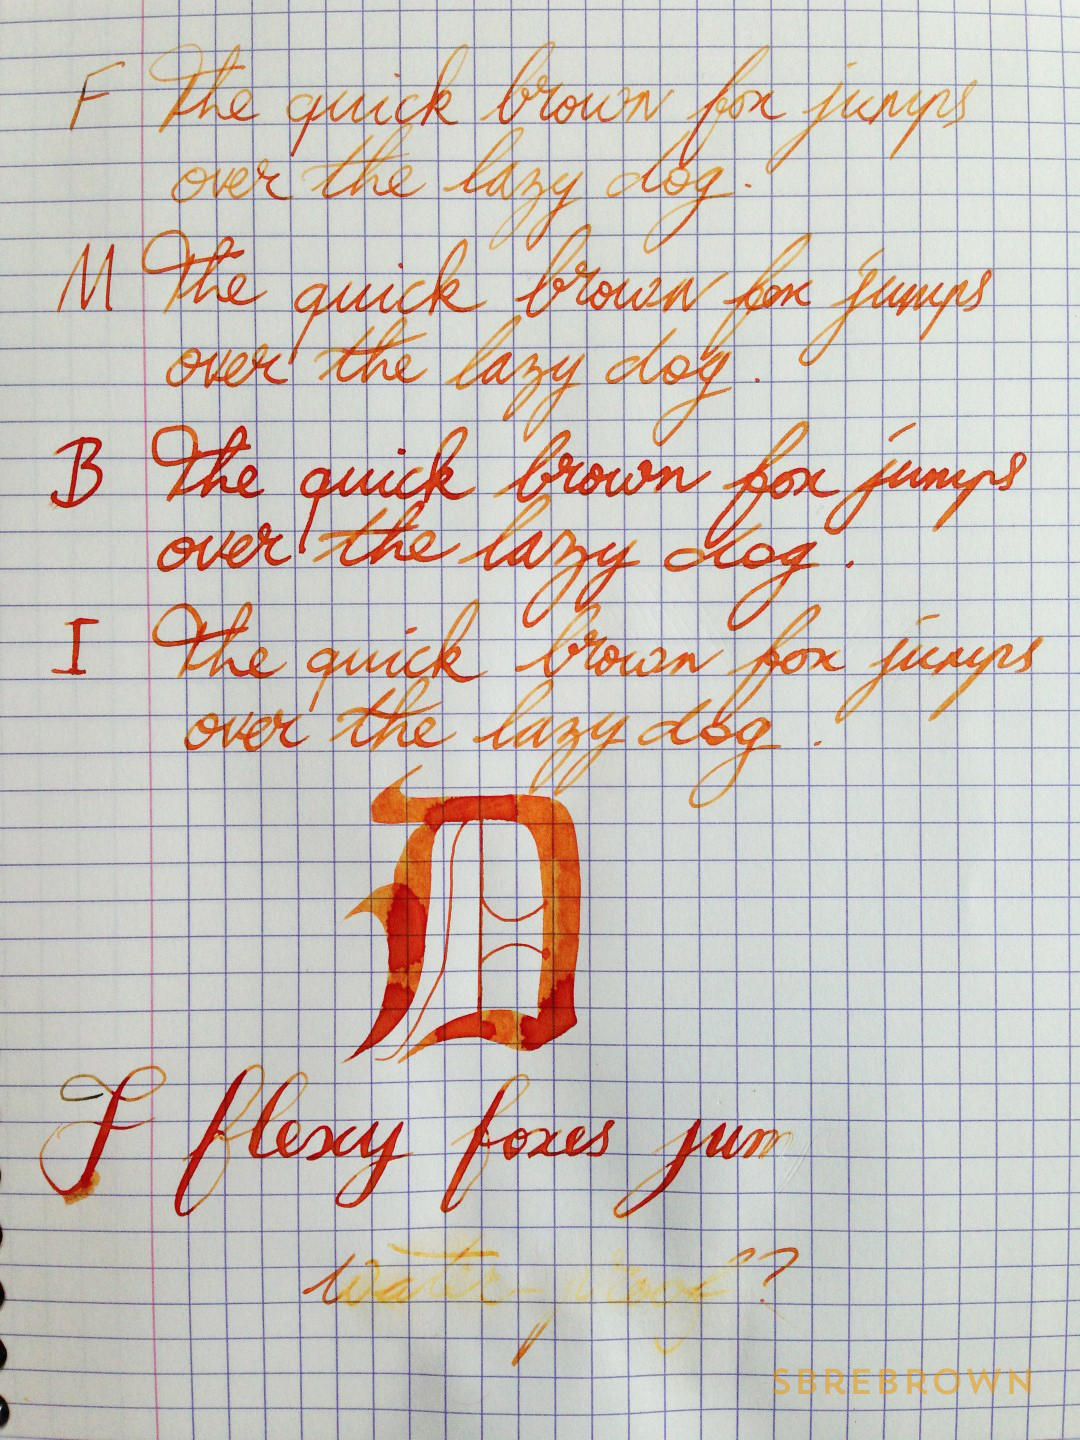 F The quick brown fox jumps
over the lazy dog.
M The quick brown fox jumps
over the lazy dog.
B The quick brown fox jumps
over the lazy dog.
I The quick brown fox jumps
over the lazy dog.
D
F flexy foxes jum
water-proof??
SBREBROWN